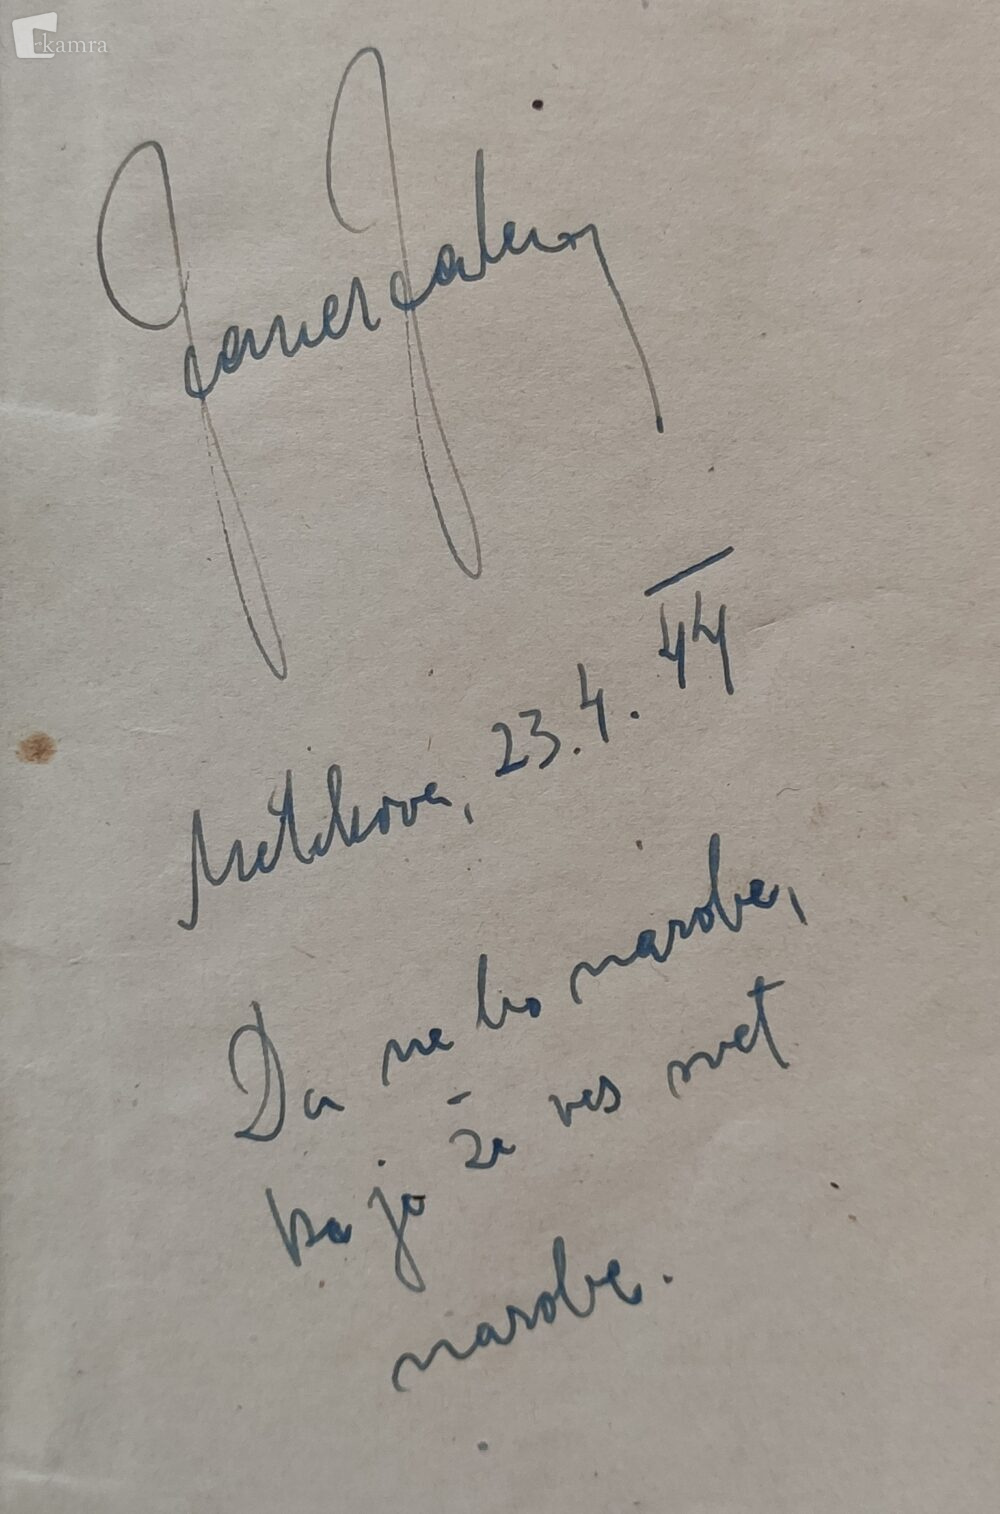 kamra
Janez Jalen
Metelkova, 23. 4. 44
Da ne bo narobe,
ko je že ves svet
narobe.